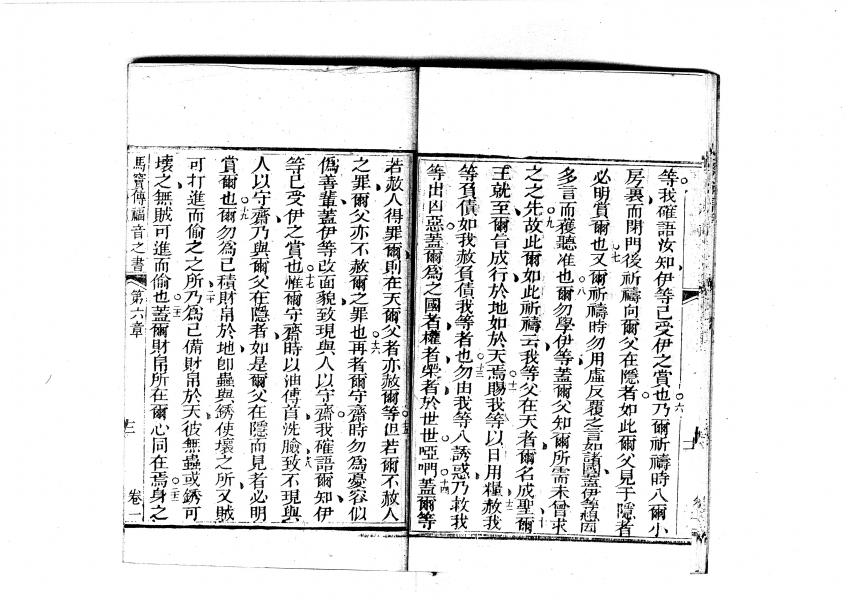 等我確語汝知伊等已受伊之賞也乃爾祈禱時入爾小
房裏而閉門後祈禱向爾父在隱者如此爾父見于隱者
必明賞爾也又爾祈禱時勿用虛反覆之言如諸國蓋伊等想因
多言而獲聽准也爾勿學伊等蓋爾父知爾所需未曾求
之之先故此爾如此祈禱云我等父在天者爾名成聖爾
王就至爾旨成行於地如於天焉賜我等以日用糧赦我
等負債如我赦負債我等者也勿由我等入誘惑乃救我
等出凶惡蓋爾為之國者權者榮者於世世啞㖿蓋爾等
若赦人得罪爾則在天爾父者亦赦爾等但若爾不赦人
之罪爾父亦不赦爾之罪也再者爾守齋時勿為憂容似
偽善輩蓋伊等改面貌致現與人以守齋我確語爾知伊
等已受伊之賞也惟爾守齋時以油傅首洗臉致不現與
人以守齋乃與爾父在隱者如是爾父在隱而見者必明
賞爾也爾勿為己積財帛於地即蟲與銹使壞之所又賊
可打進而偷之之所乃為己備財帛於天彼無蟲或銹可
壞之無賊可進而偷也蓋爾財帛所在爾心同在焉身之
馬竇傳福音之書 第六章 卷一